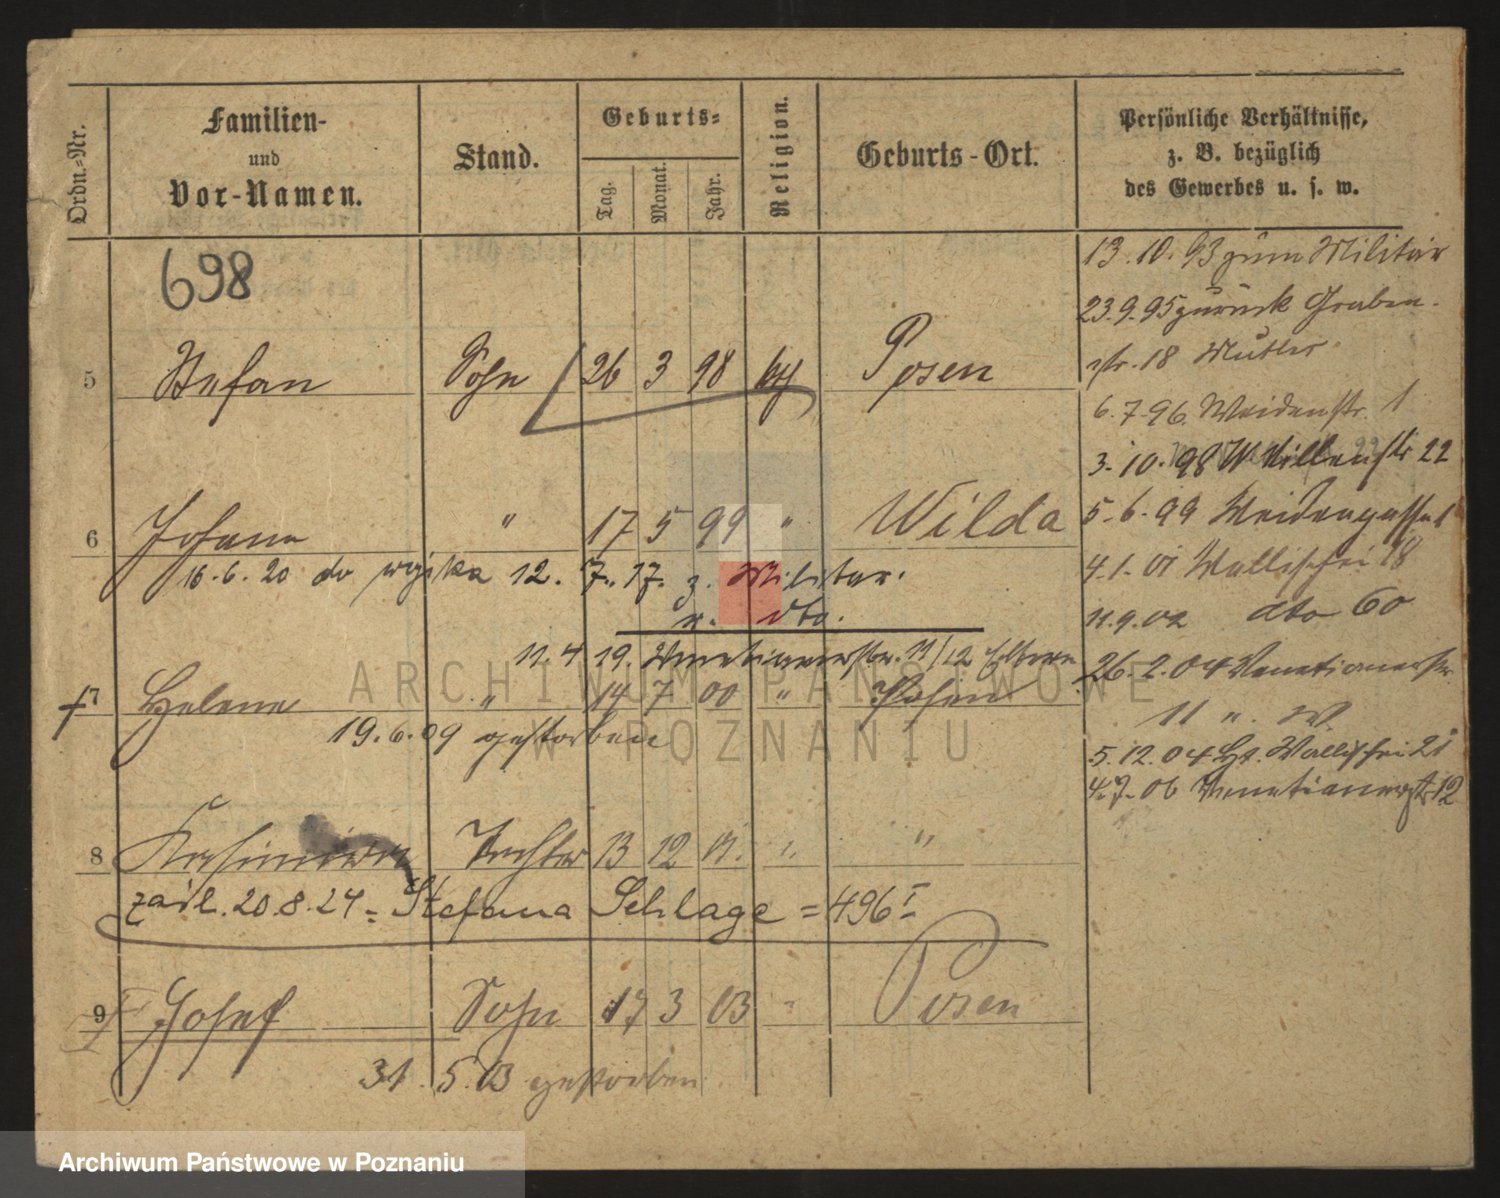 Ordn.-Nr.
Familien-
und
Vor-Namen.
Stand.
Geburts-
Tag.
Monat.
Jahr.
Religion.
Geburts-Ort.
Persönliche Verhältnisse,
z. B. bezüglich
des Gewerbes u. s. w.
698
5 Stefan Sohn 26 3 98 kth Posen
6 Johann " 17 5 99 " Wilda
16.6.20 do wojska 12. 7. 17. z. Militär.
v. dto.
11.4.19. Venetianerstr. 11/12 Eltern
7 Helene " 14 7 00 " Posen
19.6.09 gestorben
8 Kasimira Tochter 13 12 01. " "
20.8.24 = Stefana Schlage = 496 I
9 Josef Sohn 17 3 03 " Posen
31.5.13 gestorben
13.10.93 zum Militär
23.9.95 zurück Graben-
str. 18 Mutter.
6.7.96. Weidenstr. 1
3.10.98 W 22
5.6.99 Weidengasse 1
4.1.01 Wallischei 18
11.9.02 dto 60
26.2.04 Venetianerstr.
11 u. W
5.12.04 Wallischei 21
4.7.06 Venetianerstr. 12
ARCHIWUM PAŃSTWOWE
W POZNANIU
Archiwum Państwowe w Poznaniu